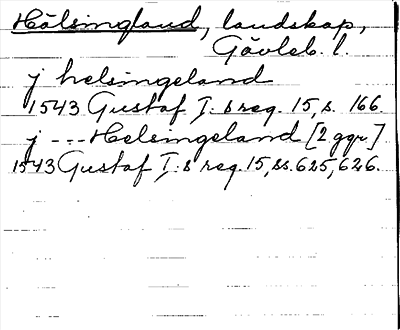 Hälsingland, landskap,
Gävleb. l.
j helsingeland
1543 Gustaf I:s reg. 15, s. 166.
j --- Helsingeland [2 ggr.]
1543 Gustaf I:s reg. 15, ss. 625, 626.